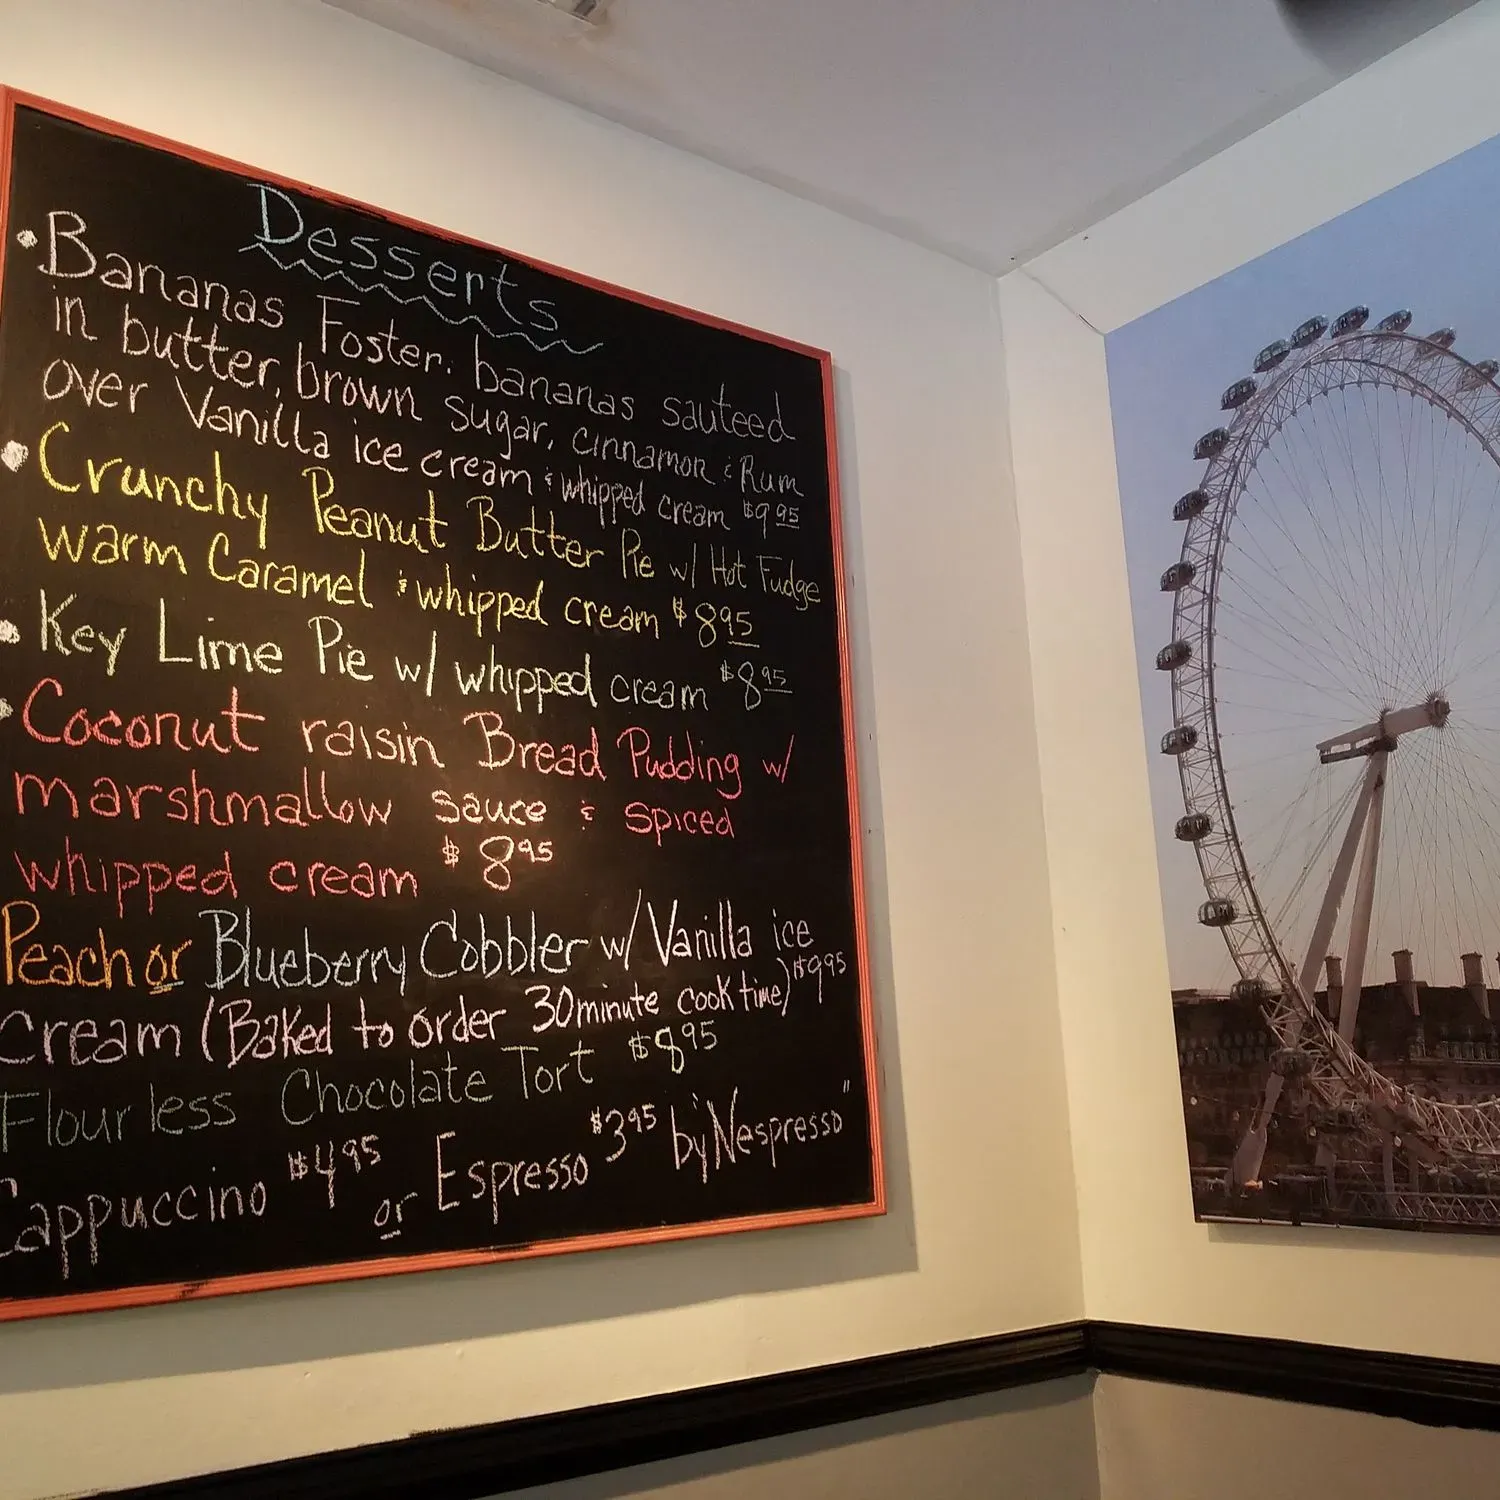 Desserts
• Bananas Foster. bananas sauteed
in butter, brown sugar, cinnamon & Rum
over Vanilla ice cream & whipped cream $9.95
• Crunchy Peanut Butter Pie w/ Hot Fudge
warm Caramel & whipped cream $8.95
• Key Lime Pie w/ whipped cream $8.95
• Coconut raisin Bread Pudding w/
marshmallow sauce & spiced
whipped cream $8.95
Peach or Blueberry Cobbler w/ Vanilla ice
cream (Baked to order 30minute cook time) $9.95
Flourless Chocolate Tort $8.95
Cappuccino $4.95 or Espresso $3.95 by "Nespresso"